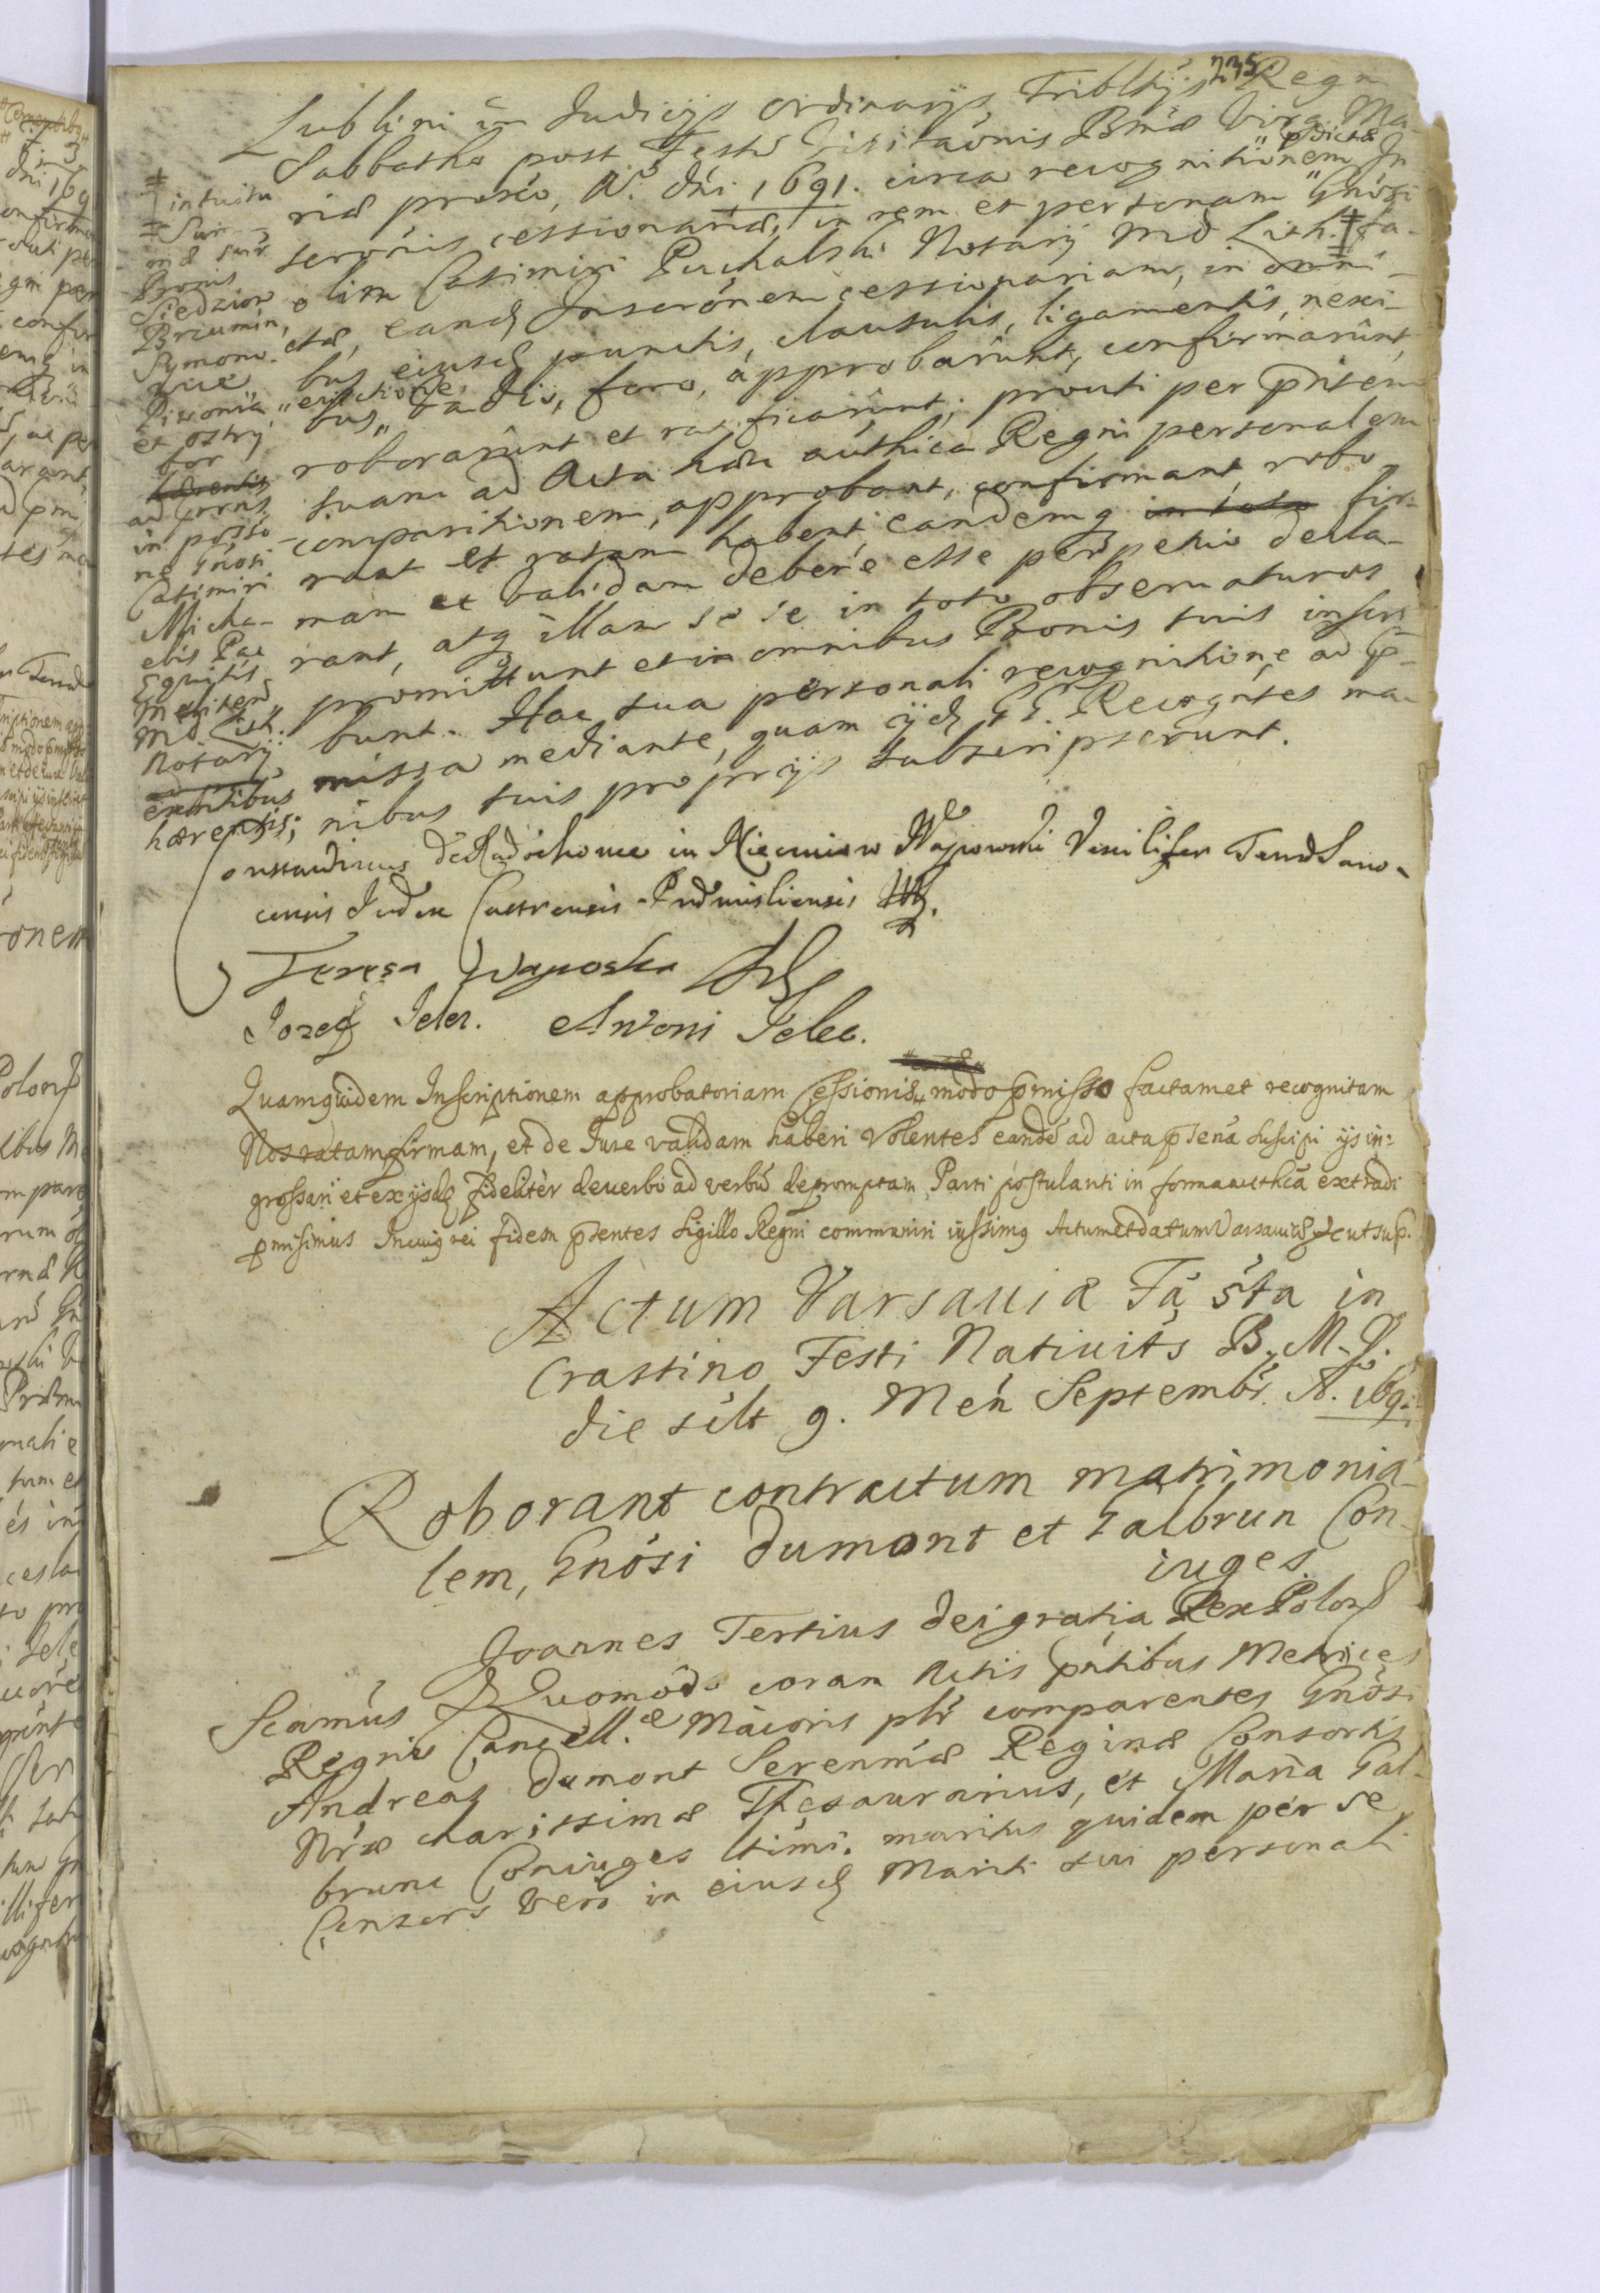 235
Lublini in Judicijs ordinarijs Tribltijs Regni
Sabbatho post Festũ Visitaonis Bmæ Virg. Ma-
riæ proxio, Aº. dńi 1691. circa recognitionem "pdictæ In
seronis cessionariæ, in rem et personam "Gnosi
olim Casimiri Puchalski Notarij M.D. Lith. ‡ fa-
ctæ, eand Inseronem cessionariam, in omni-
bus eiusd punctis, clausulis, ligamentis, nexi-
bus, "evictione, vadis, foro, approbarunt, confirmarunt,
roborarunt et ratificarunt, prouti per pntem
suam ad Acta hæc authica Regni personalem
comparitionem, approbant, confirmant, robo
rant et ratam habent eandemq in toto fir-
mam et validam debere esse perpetuo decla-
rant, atq illam se se in toto obseruaturos
promittunt et in omnibus Bonis suis inscri
bunt. Hac sua personali recognitione ad p-
missa mediante, quam ijd GG. Recogntes ma-
nibus suis proprijs subscripserunt.
‡ intuitu
‡ Sum-
mæ sup.
Bonis
Siedzion
Brzumin,
Symono-
wice
Piwonia
et ostry
bor
hærentis
ad prns
in posso
ne Gnosi
Casimiri
Micha-
elis Pac
Equitis
Meliten
M.D. Lith.
Notarij
exntibus
hærentis;
Constantinus de Radochonce in Niecniow Wapowski Vexilifer Terræ Sano-
censis Judex Castrensis Præmisliensis
Teresa Waposka
Jozef Jelec. Antoni Jelec.
Quamquidem Inscriptionem approbatoriam Cessionis modo pmisso factam et recognitam
Nos ratam firmam, et de Jure validam haberi volentes eandẽ ad acta psena suscipi ijs in-
grossari et ex ijsdq fideliter de verbo ad verbũ depromptam Parti postulanti in forma authca extradi
pmisimus Incuiq rei fidem psentes Sigillo Regni communiri iussimq Actum et datum Varsauiæ fr ut sup.
Actum Varsauiæ Fa sta in
Crastino Festi Natiuits B. M. V.
die silt 9. Men Septembr. A. 1691
Roborant contractum matrimonia-
lem, Gnosi Dumont et Galbrun Con-
iuges
Joannes Tertius dei gratia Rex Polon
Scamus Quomodo coram Actis pntibus Metrices
Regni Cancell.æ Maioris plr comparentes Gnosi
Andreas Dumont Serenmæ Reginæ Consortis
Nræ charissimæ Thesaurarius, et Maria Gal-
brunc Coniuges ltimi. maritus quidem per se
Consors vero in eiusd Mariti sui personali